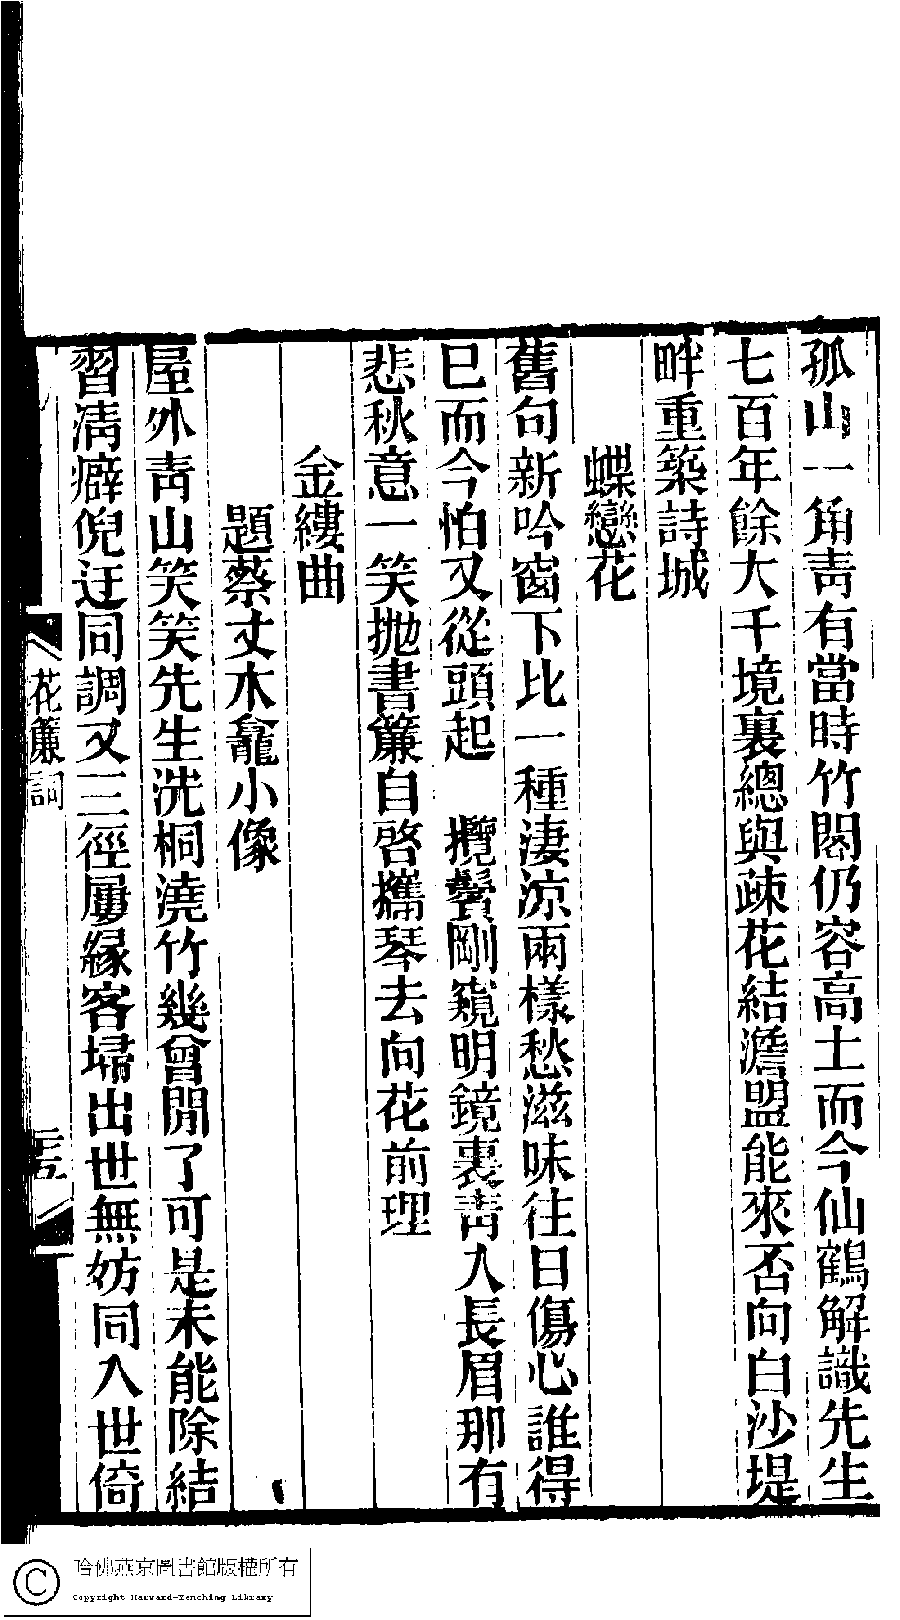 孤山一角靑有當時竹閣仍容高士而今仙鶴解識先生
七百年餘大千境裏總與疎花結澹盟能來否向白沙堤
畔重築詩城
蝶戀花
舊句新吟窗下比一種淒涼兩樣愁滋味往日傷心誰得
已而今怕又從頭起　攬鬢剛窺明鏡裏靑入長眉那有
悲秋意一笑拋書簾自啓攜琴去向花前理
金縷曲
題蔡丈木龕小像
屋外靑山笑笑先生洗桐澆竹幾曾閒了可是未能除結
習淸癖倪迂同調又三徑屢緣客埽出世無妨同入世倚
花簾詞
三五
哈佛燕京圖書館版權所有
Copyright Harvard-Yenching Library